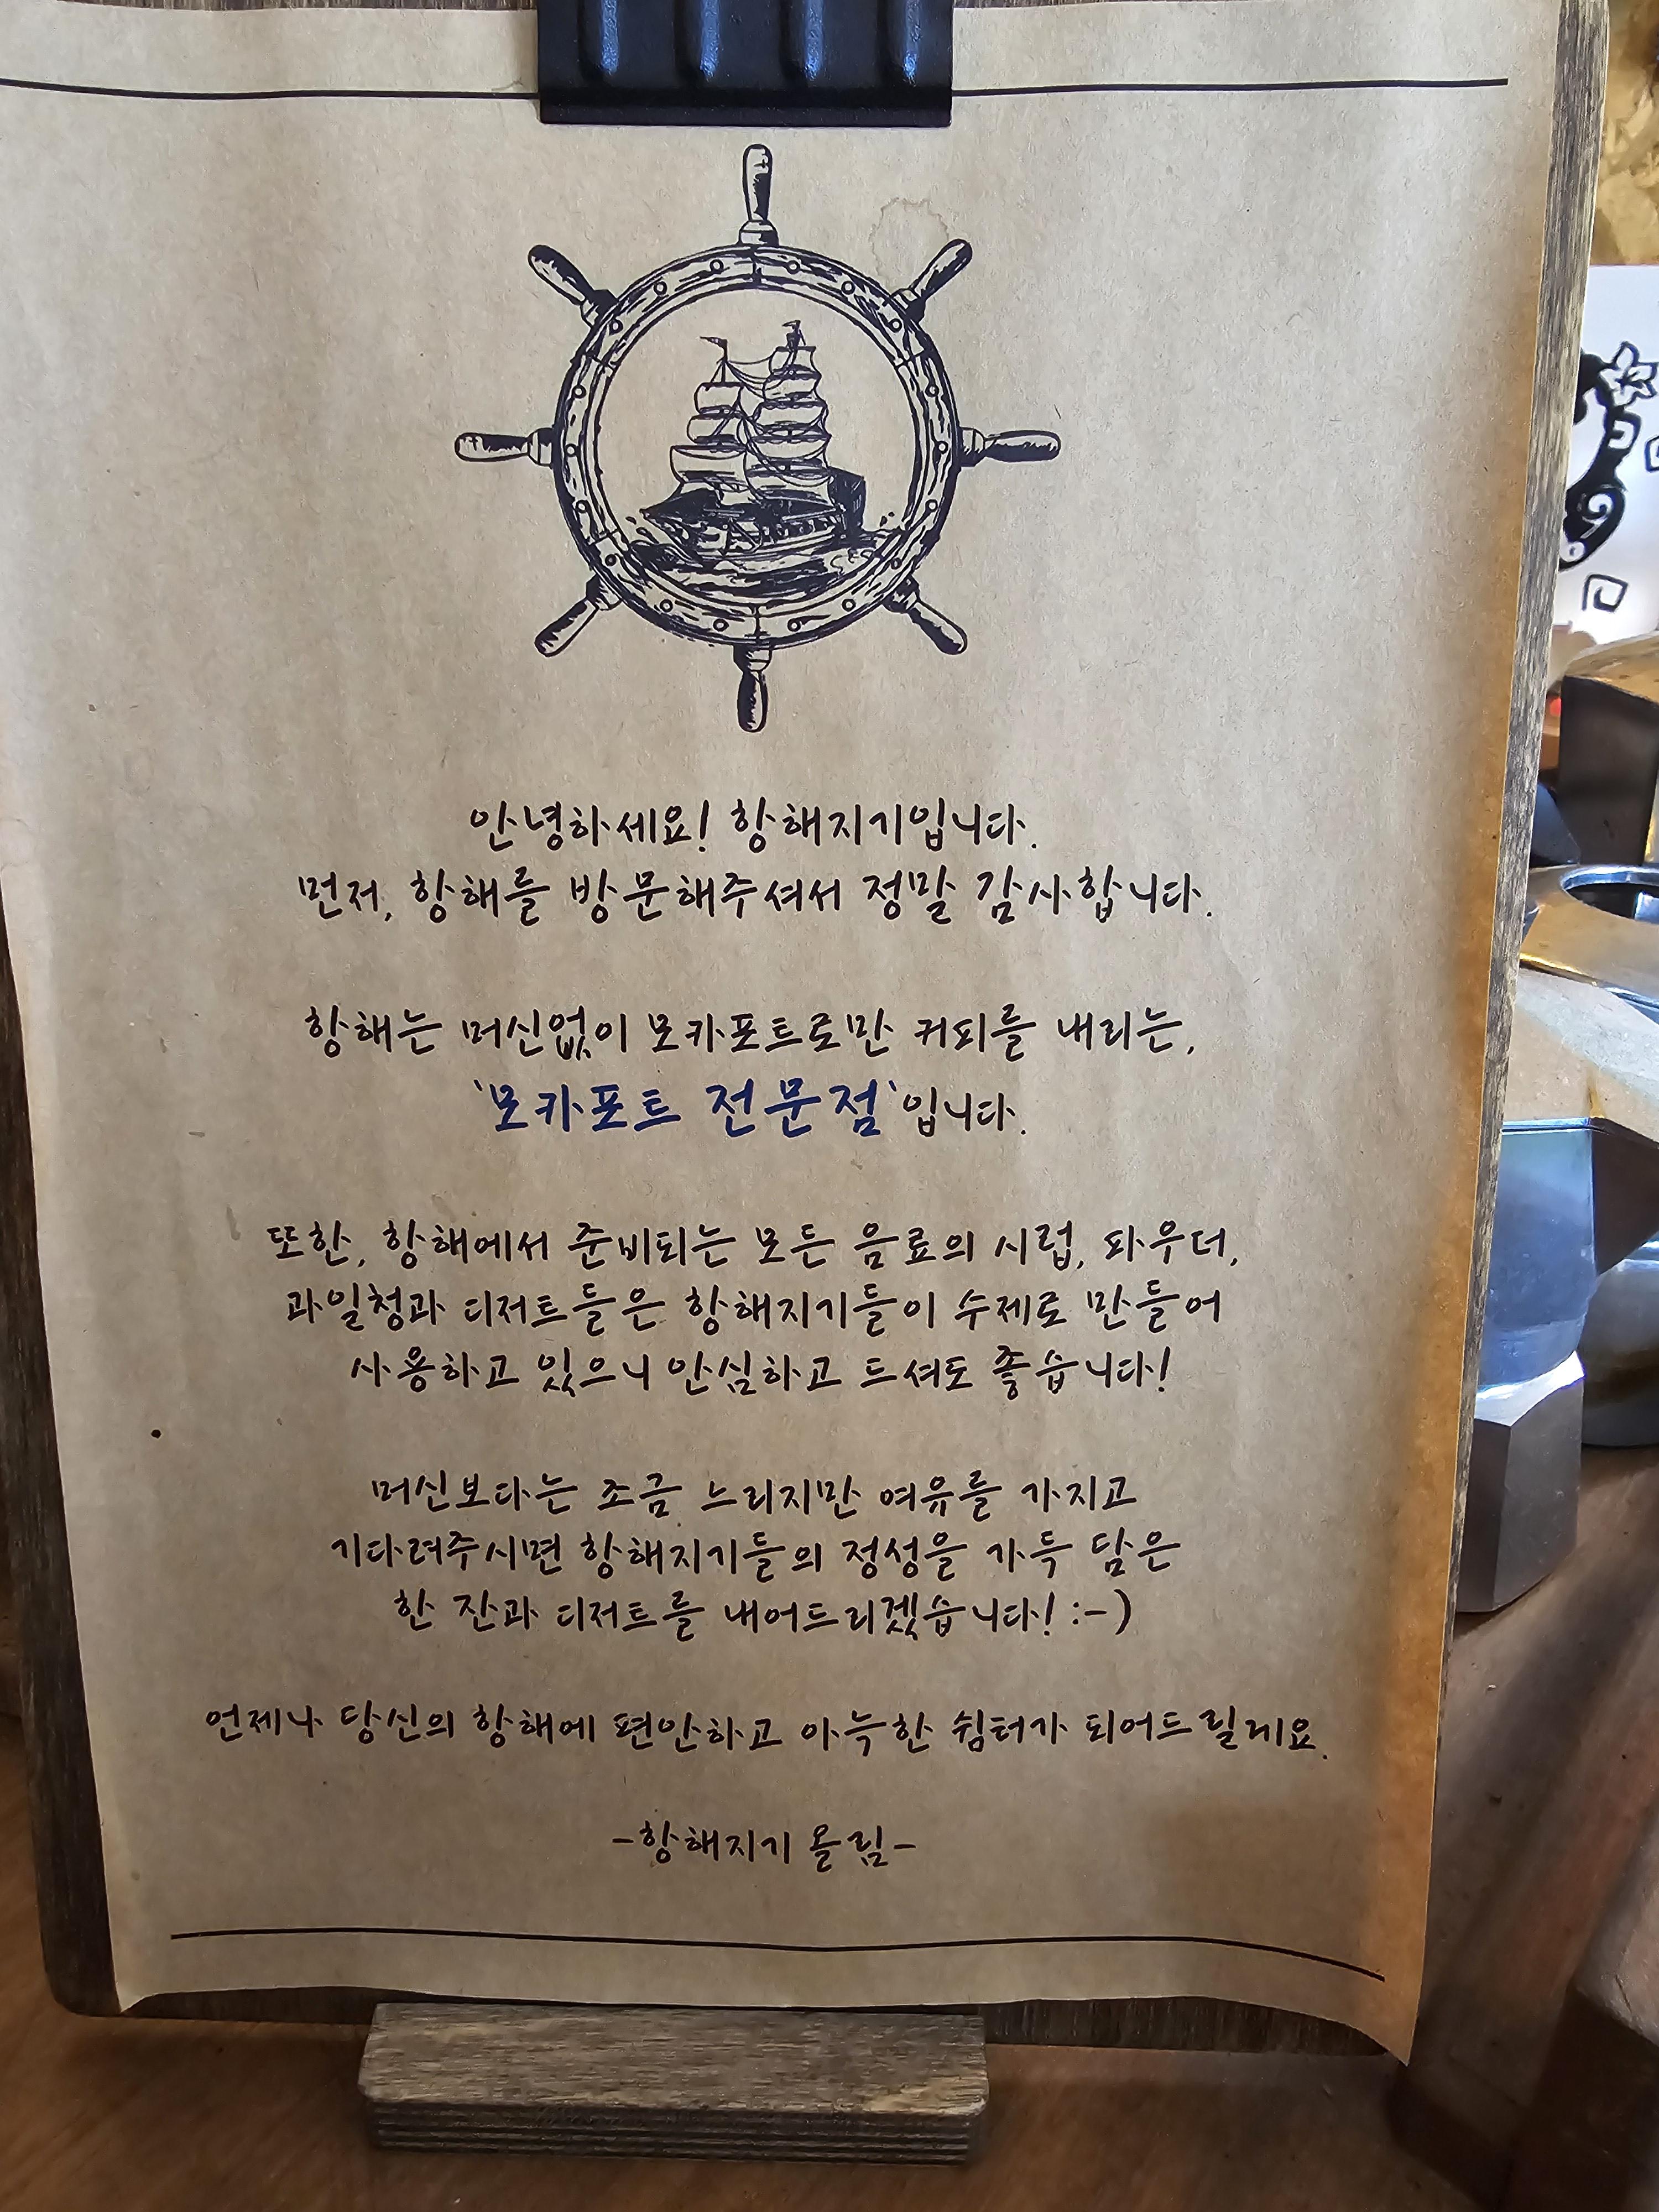 안녕하세요! 항해지기입니다.
먼저, 항해를 방문해주셔서 정말 감사합니다.
항해는 머신없이 모카포트로만 커피를 내리는,
'모카포트 전문점'입니다.
또한, 항해에서 준비되는 모든 음료의 시럽, 파우더,
과일청과 디저트들은 항해지기들이 수제로 만들어
사용하고 있으니 안심하고 드셔도 좋습니다!
머신보다는 조금 느리지만 여유를 가지고
기다려주시면 항해지기들의 정성을 가득 담은
한 잔과 디저트를 내어드리겠습니다! :-)
언제나 당신의 항해에 편안하고 아늑한 쉼터가 되어드릴게요.
-항해지기 올림-